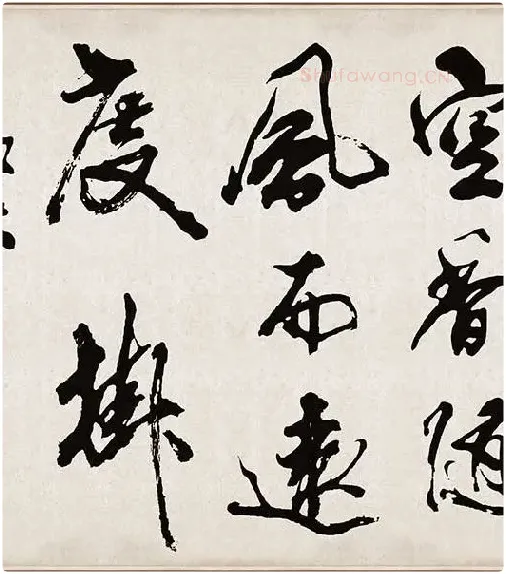 空香隨
風而遠
度掛
Shufawang.CN